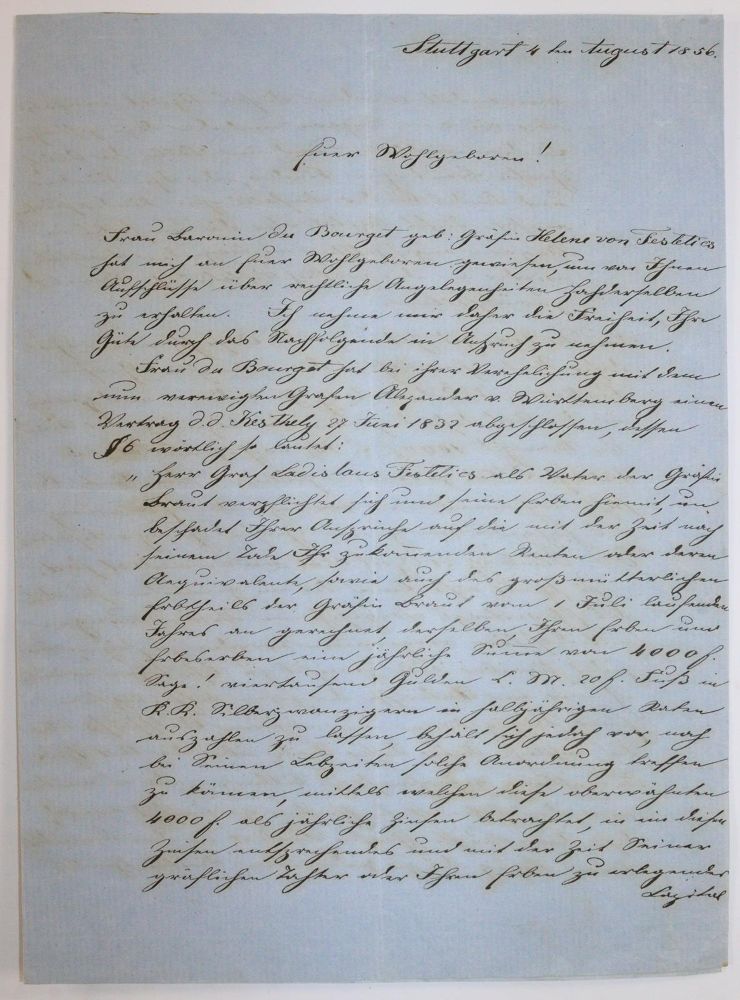 Stuttgart 4 ten August 1856.
Euer Wohlgeboren!
Frau Baronin du Bourget geb: Gräfin Helene von Festetics
hat mich an Euer Wohlgeboren gewiesen, um von Ihnen
Aufschlüsse über rechtliche Angelegenheiten Hochderselben
zu erhalten. Ich nehme mir daher die Freiheit, Ihre
Güte durch das Nachfolgende in Anspruch zu nehmen.
Frau du Bourget hat bei ihrer Verehelichung mit dem
nun verewigten Grafen Alexander v. Württemberg einen
Vertrag d.d. Kesthely 27 Juni 1832 abgeschlossen, dessen
§ 6 wörtlich so lautet:
„ Herr Graf Ladislaus Festetics als Vater der Gräfin
Braut verpflichtet sich und seine Erben hiemit, un-
beschadet Ihrer Ansprüche auf die mit der Zeit nach
seinem Tode Ihr zukommenden Renten oder deren
Aequivalente, sowie auch des großmütterlichen
Erbtheils der Gräfin Braut vom 1 Juli laufenden
Jahres an gerechnet, derselben, Ihren Erben und
Erbeserben eine jährliche Summe von 4000 f.
Sage! viertausend Gulden C. M. 20 f. Fuß in
K.K. Silberzwanzigern in halbjährigen Raten
auszahlen zu lassen, behält sich jedoch vor, noch
bei Seinen Lebzeiten solche Anordnung treffen
zu können, mittels welchen diese oberwähnten
4000 f. als jährliche Zinsen betrachtet, in ein diesen
Zinsen entsprechendes und mit der Zeit Seiner
gräflichen Tochter oder Ihren Erben zu erlegendes
Capital